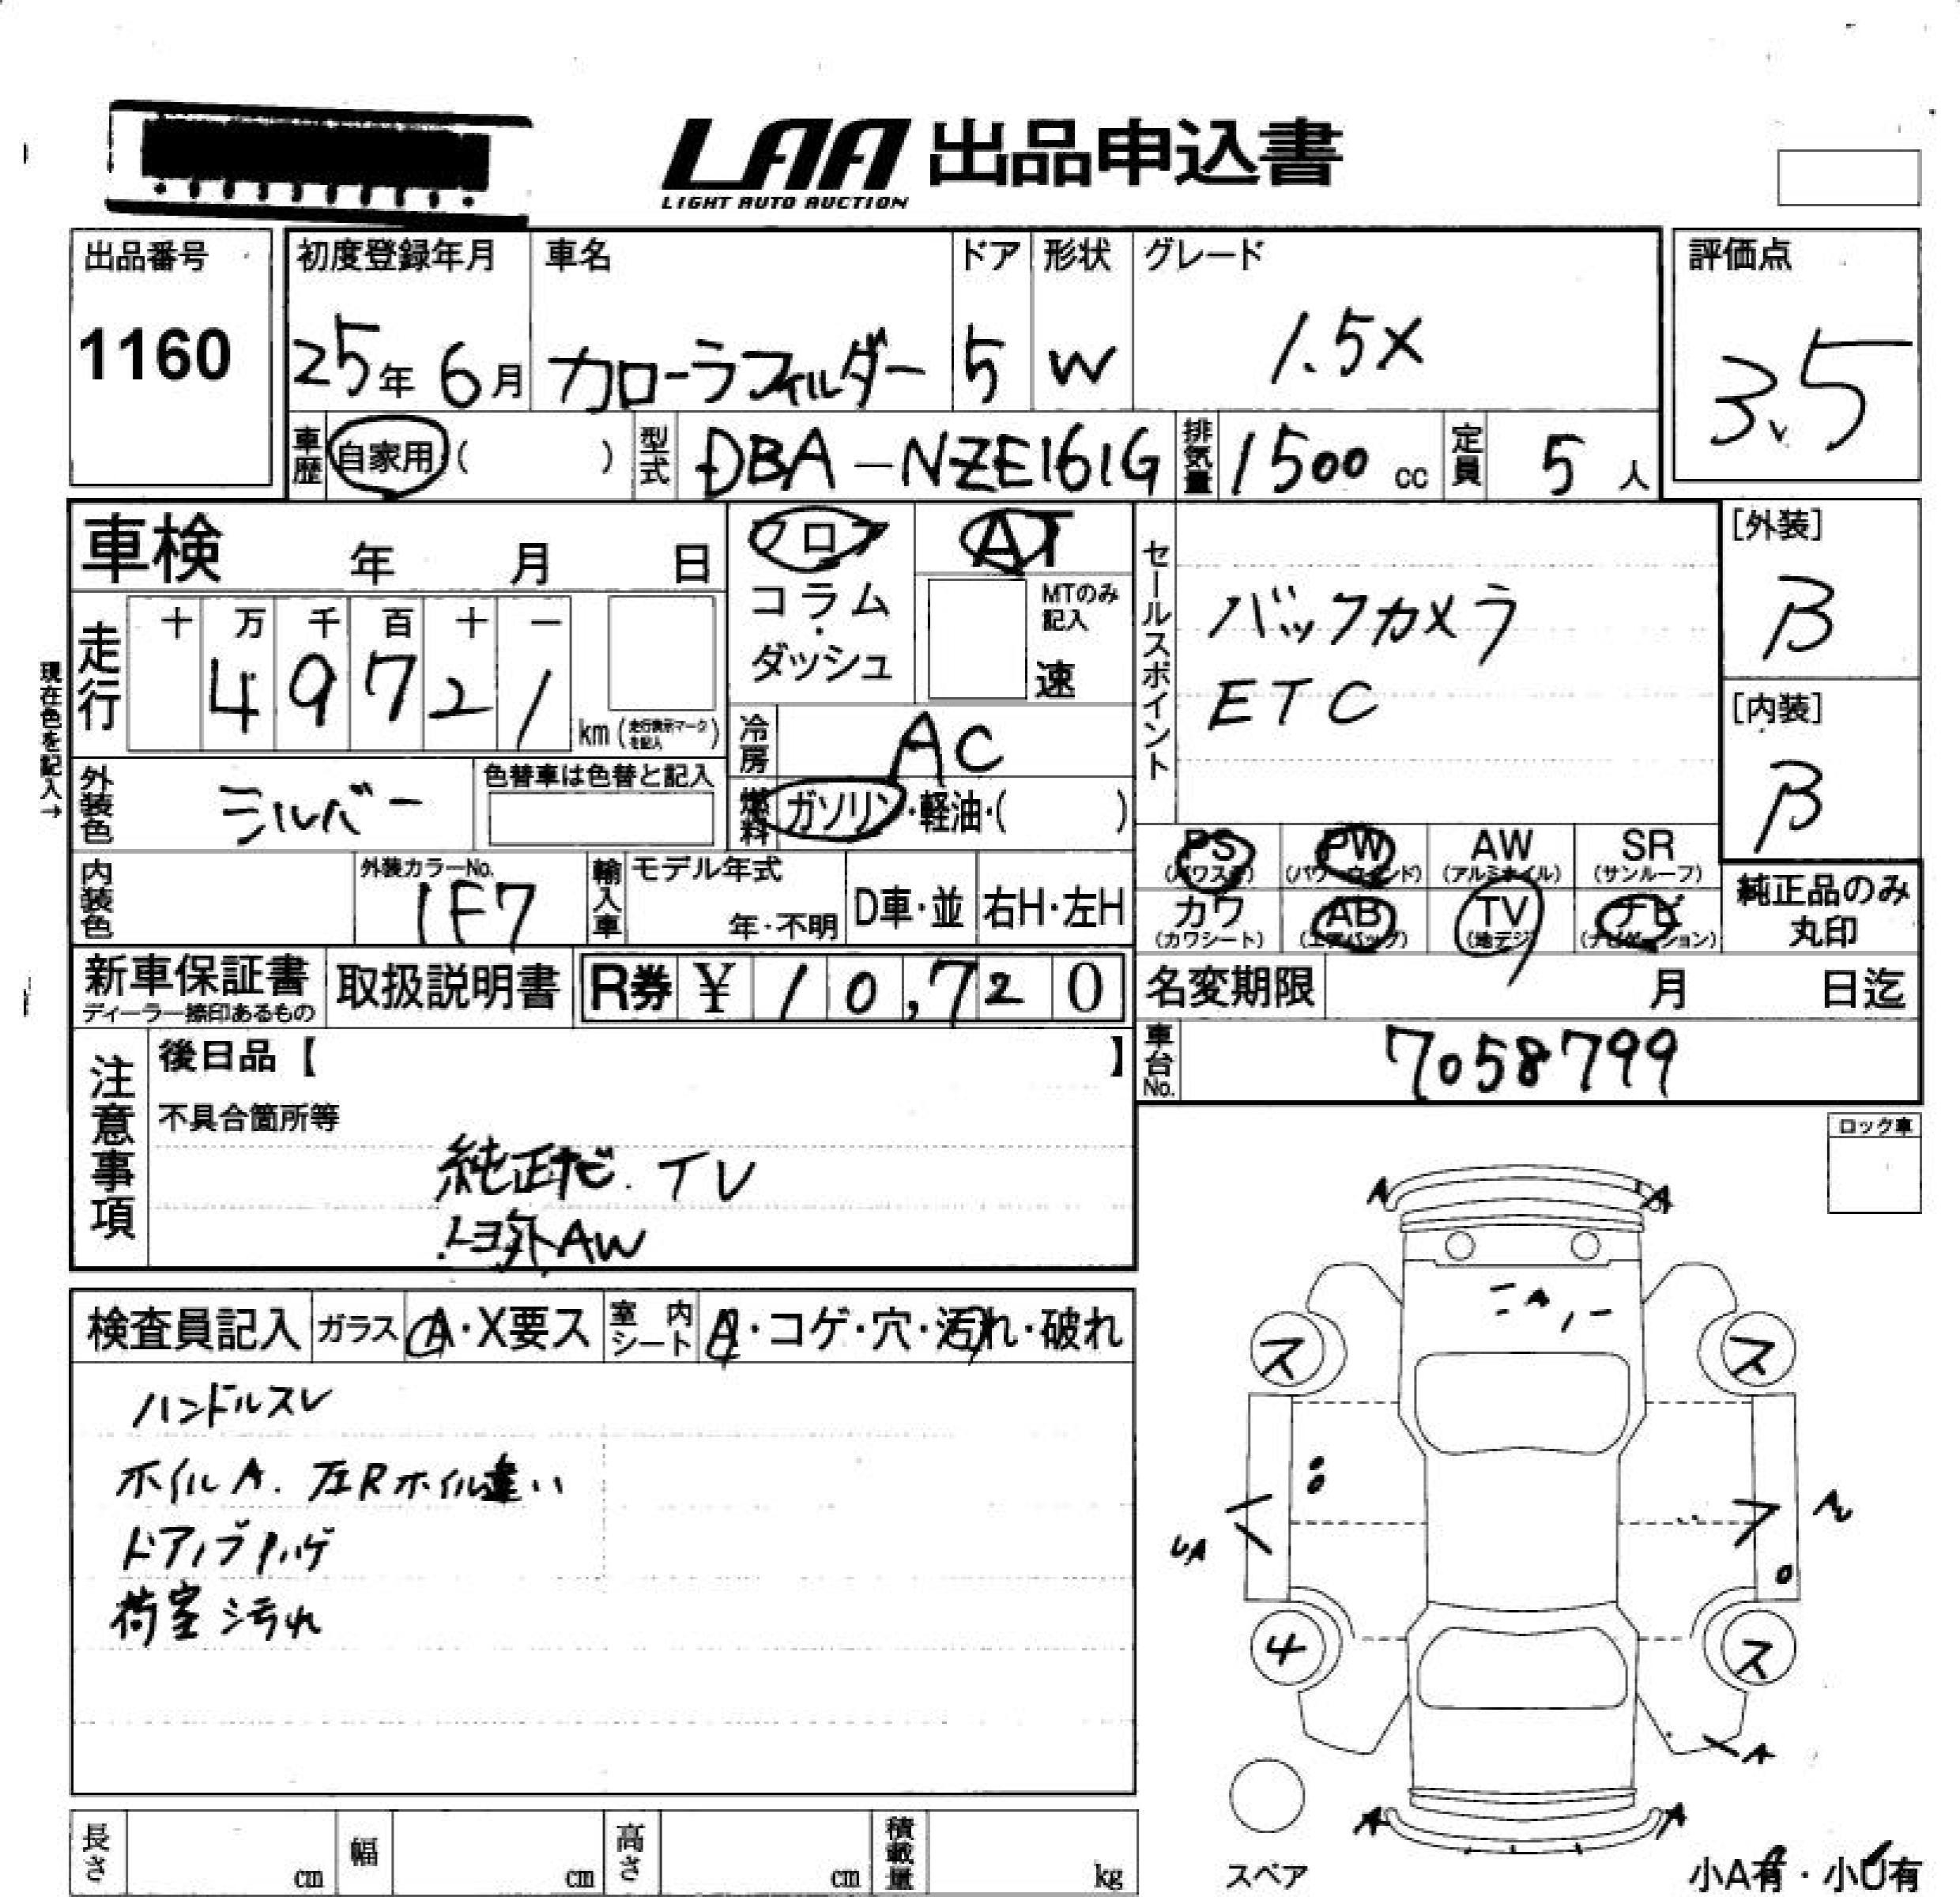 LAA 出品申込書
LIGHT AUTO AUCTION
出品番号
1160
初度登録年月
25年 6月
車名
カローラフィルダー
ドア
5
形状
W
グレード
1.5X
評価点
3.5
車歴 自家用 ( )
型式 DBA-NZE161G
排気量 1500 cc
定員 5 人
車検 年 月 日
フロア
コラム
・
ダッシュ
AT
MTのみ
記入
速
セールスポイント
バックカメラ
ETC
[外装]
B
[内装]
B
現在色を記入→
走行
十 万 千 百 十 一
4 9 7 2 1
km (走行表示マークを記入)
冷房 AC
外装色 シルバー
色替車は色替と記入
燃料 ガソリン・軽油・( )
PS (パワステ)
PW (パワーウィンド)
AW (アルミホイル)
SR (サンルーフ)
カワ (カワシート)
AB (エアバッグ)
TV (地デジ)
ナビ (ナビゲーション)
純正品のみ
丸印
内装色
外装カラーNo.
1F7
輸入車
モデル年式
年・不明
D車・並
右H・左H
新車保証書
ディーラー捺印あるもの
取扱説明書
R券 ¥ 10,720
名変期限 月 日迄
車台No. 7058799
注意事項
後日品【 】
不具合箇所等
純正ナビ. TV
社外AW
ロック車
検査員記入
ガラス A・X要ス
室内シート A・コゲ・穴・汚れ・破れ
ハンドルスレ
ホイルA. 左Rホイル違い
ドアノブハゲ
荷室汚れ
A A
A
ス ス
UA
4 ス
A
A A
スペア
小A有・小U有
長さ cm
幅 cm
高さ cm
積載量 kg